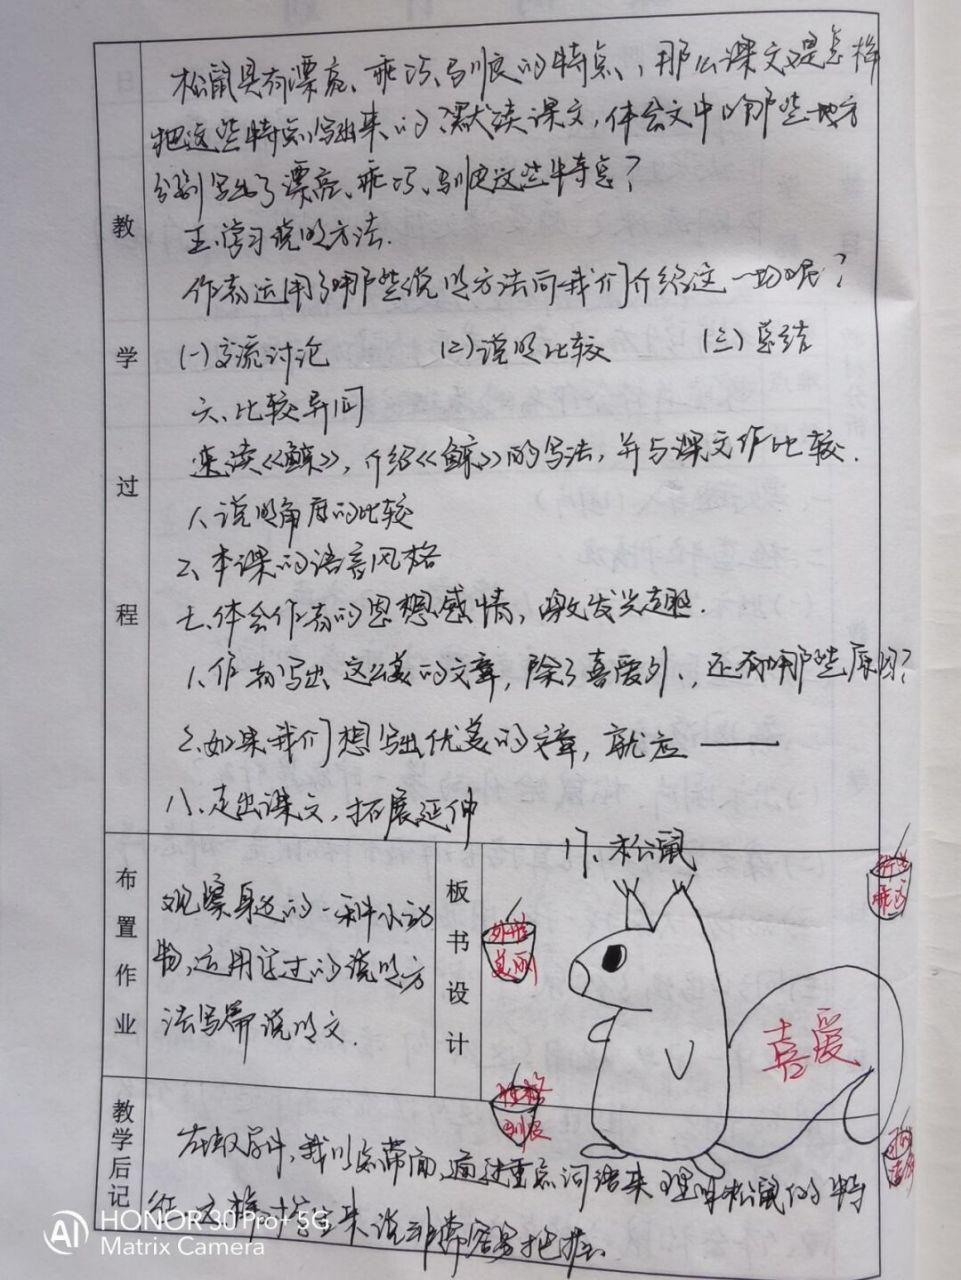 松鼠具有漂亮、乖巧、驯良的特点,那么课文是怎样
把这些特点写出来的?默读课文,体会文中哪些地方
分别写出了漂亮、乖巧、驯良这些特点?
五、学习说明方法.
作者运用了哪些说明方法向我们介绍这一切呢?
(一)交流讨论 (二)说明比较 (三)总结
六、比较异同
速读《鲸》,介绍《鲸》的写法,并与课文作比较.
1、说明角度的比较
2、本课的语言风格
七、体会作者的思想感情,激发兴趣.
1、作者写出这么美的文章,除了喜爱外,还有哪些原因?
2、如果我们想写出优美的文章,就应——
八、走出课文,拓展延伸
教学过程
布置作业
观察身边的一种小动
物,运用学过的说明方
法写篇说明文.
板书设计
17、松鼠
外形
美丽
乖巧
性格
驯良
喜爱
教学后记
我以点带面,通过重点词语来理解松鼠的特
征.这样对学生来说非常容易把握.
AI HONOR 30 Pro+ 5G
Matrix Camera